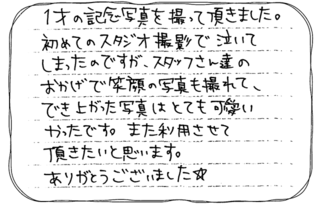 1才の記念写真を撮って頂きました。
初めてのスタジオ撮影で泣いて
しまったのですが、スタッフさん達の
おかげで笑顔の写真も撮れて、
でき上がった写真はとても可愛い
かったです。また利用させて
頂きたいと思います。
ありがとうございました☆